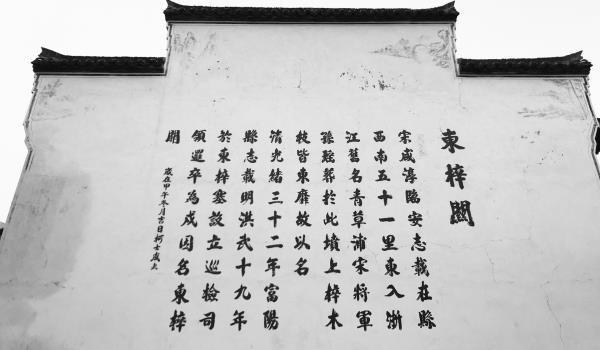 東梓關
宋咸淳臨安志載在縣
西南五十一里東入浙
江舊名青草浦宋將軍
孫瑤葬於此墳上梓木
枝皆東靡故以名
清光緒三十二年富陽
縣志載明洪武十九年
於東梓塞設立巡檢司
領邏卒為戍因名東梓
關
歲在甲午冬月吉日柯士成